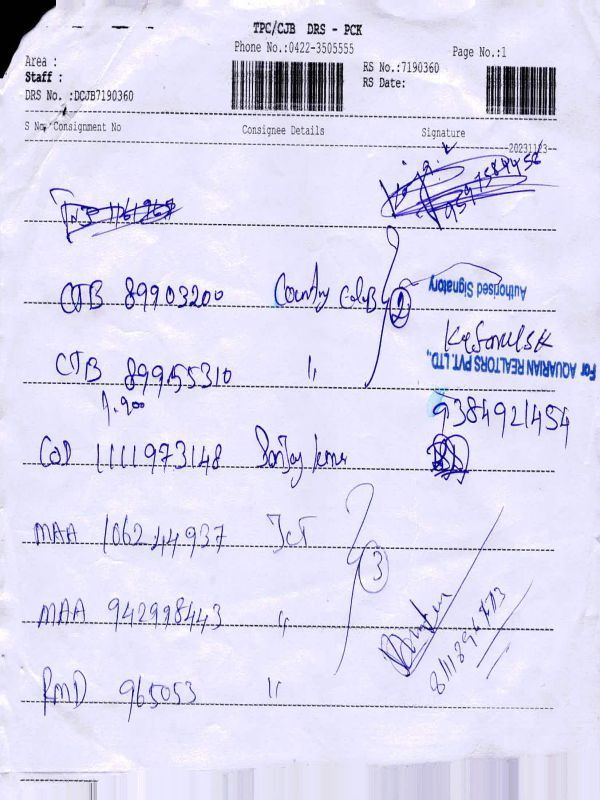 TPC/CJB DRS - PCK
Phone No.:0422-3505555
Page No.:1
Area :
Staff :
DRS No. :DCJB7190360
RS No.:7190360
RS Date:
S No. Consignment No Consignee Details Signature
20231123
9597584456
CJB 89903200 Country Club 2
Authorised Signatory
CJB 89955310 "
For AQUARIAN REALTORS PVT. LTD.,
1.900
9384921454
COD 1111973148 Sanjay
MAA 106244937 JCT
3
MAA 942998443 "
RMD 965053 "